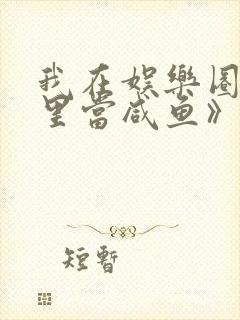 我在娱樂圈
里當咸鱼》
短暫